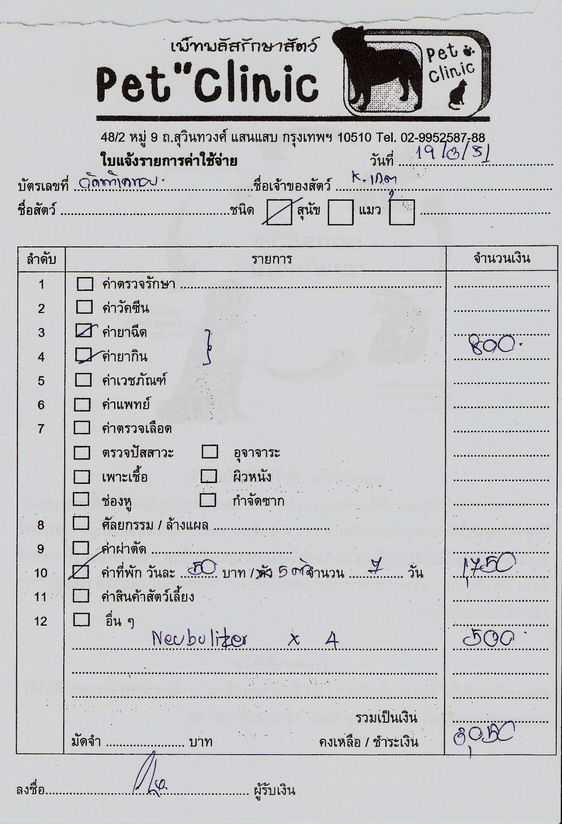 เพ็ทพลัสรักษาสัตว์
Pet"Clinic
Pet Clinic
48/2 หมู่ 9 ถ.สุวินทวงศ์ แสนแสบ กรุงเทพฯ 10510 Tel. 02-9952587-88
ใบแจ้งรายการค่าใช้จ่าย วันที่ 19/3/51
บัตรเลขที่ ชื่อเจ้าของสัตว์ K.
ชื่อสัตว์ ชนิด สุนัข แมว
ลำดับ รายการ จำนวนเงิน
1 ค่าตรวจรักษา
2 ค่าวัคซีน
3 ค่ายาฉีด
4 ค่ายากิน 800.
5 ค่าเวชภัณฑ์
6 ค่าแพทย์
7 ค่าตรวจเลือด
ตรวจปัสสาวะ อุจจาระ
เพาะเชื้อ ผิวหนัง
ช่องหู กำจัดซาก
8 ศัลยกรรม / ล้างแผล
9 ค่าผ่าตัด
10 ค่าที่พัก วันละ 50 บาท / 5 ตัว จำนวน 7 วัน 1,750
11 ค่าสินค้าสัตว์เลี้ยง
12 อื่น ๆ
Neubulizer x 4 500
รวมเป็นเงิน
มัดจำ บาท คงเหลือ / ชำระเงิน 3,050
ลงชื่อ ผู้รับเงิน